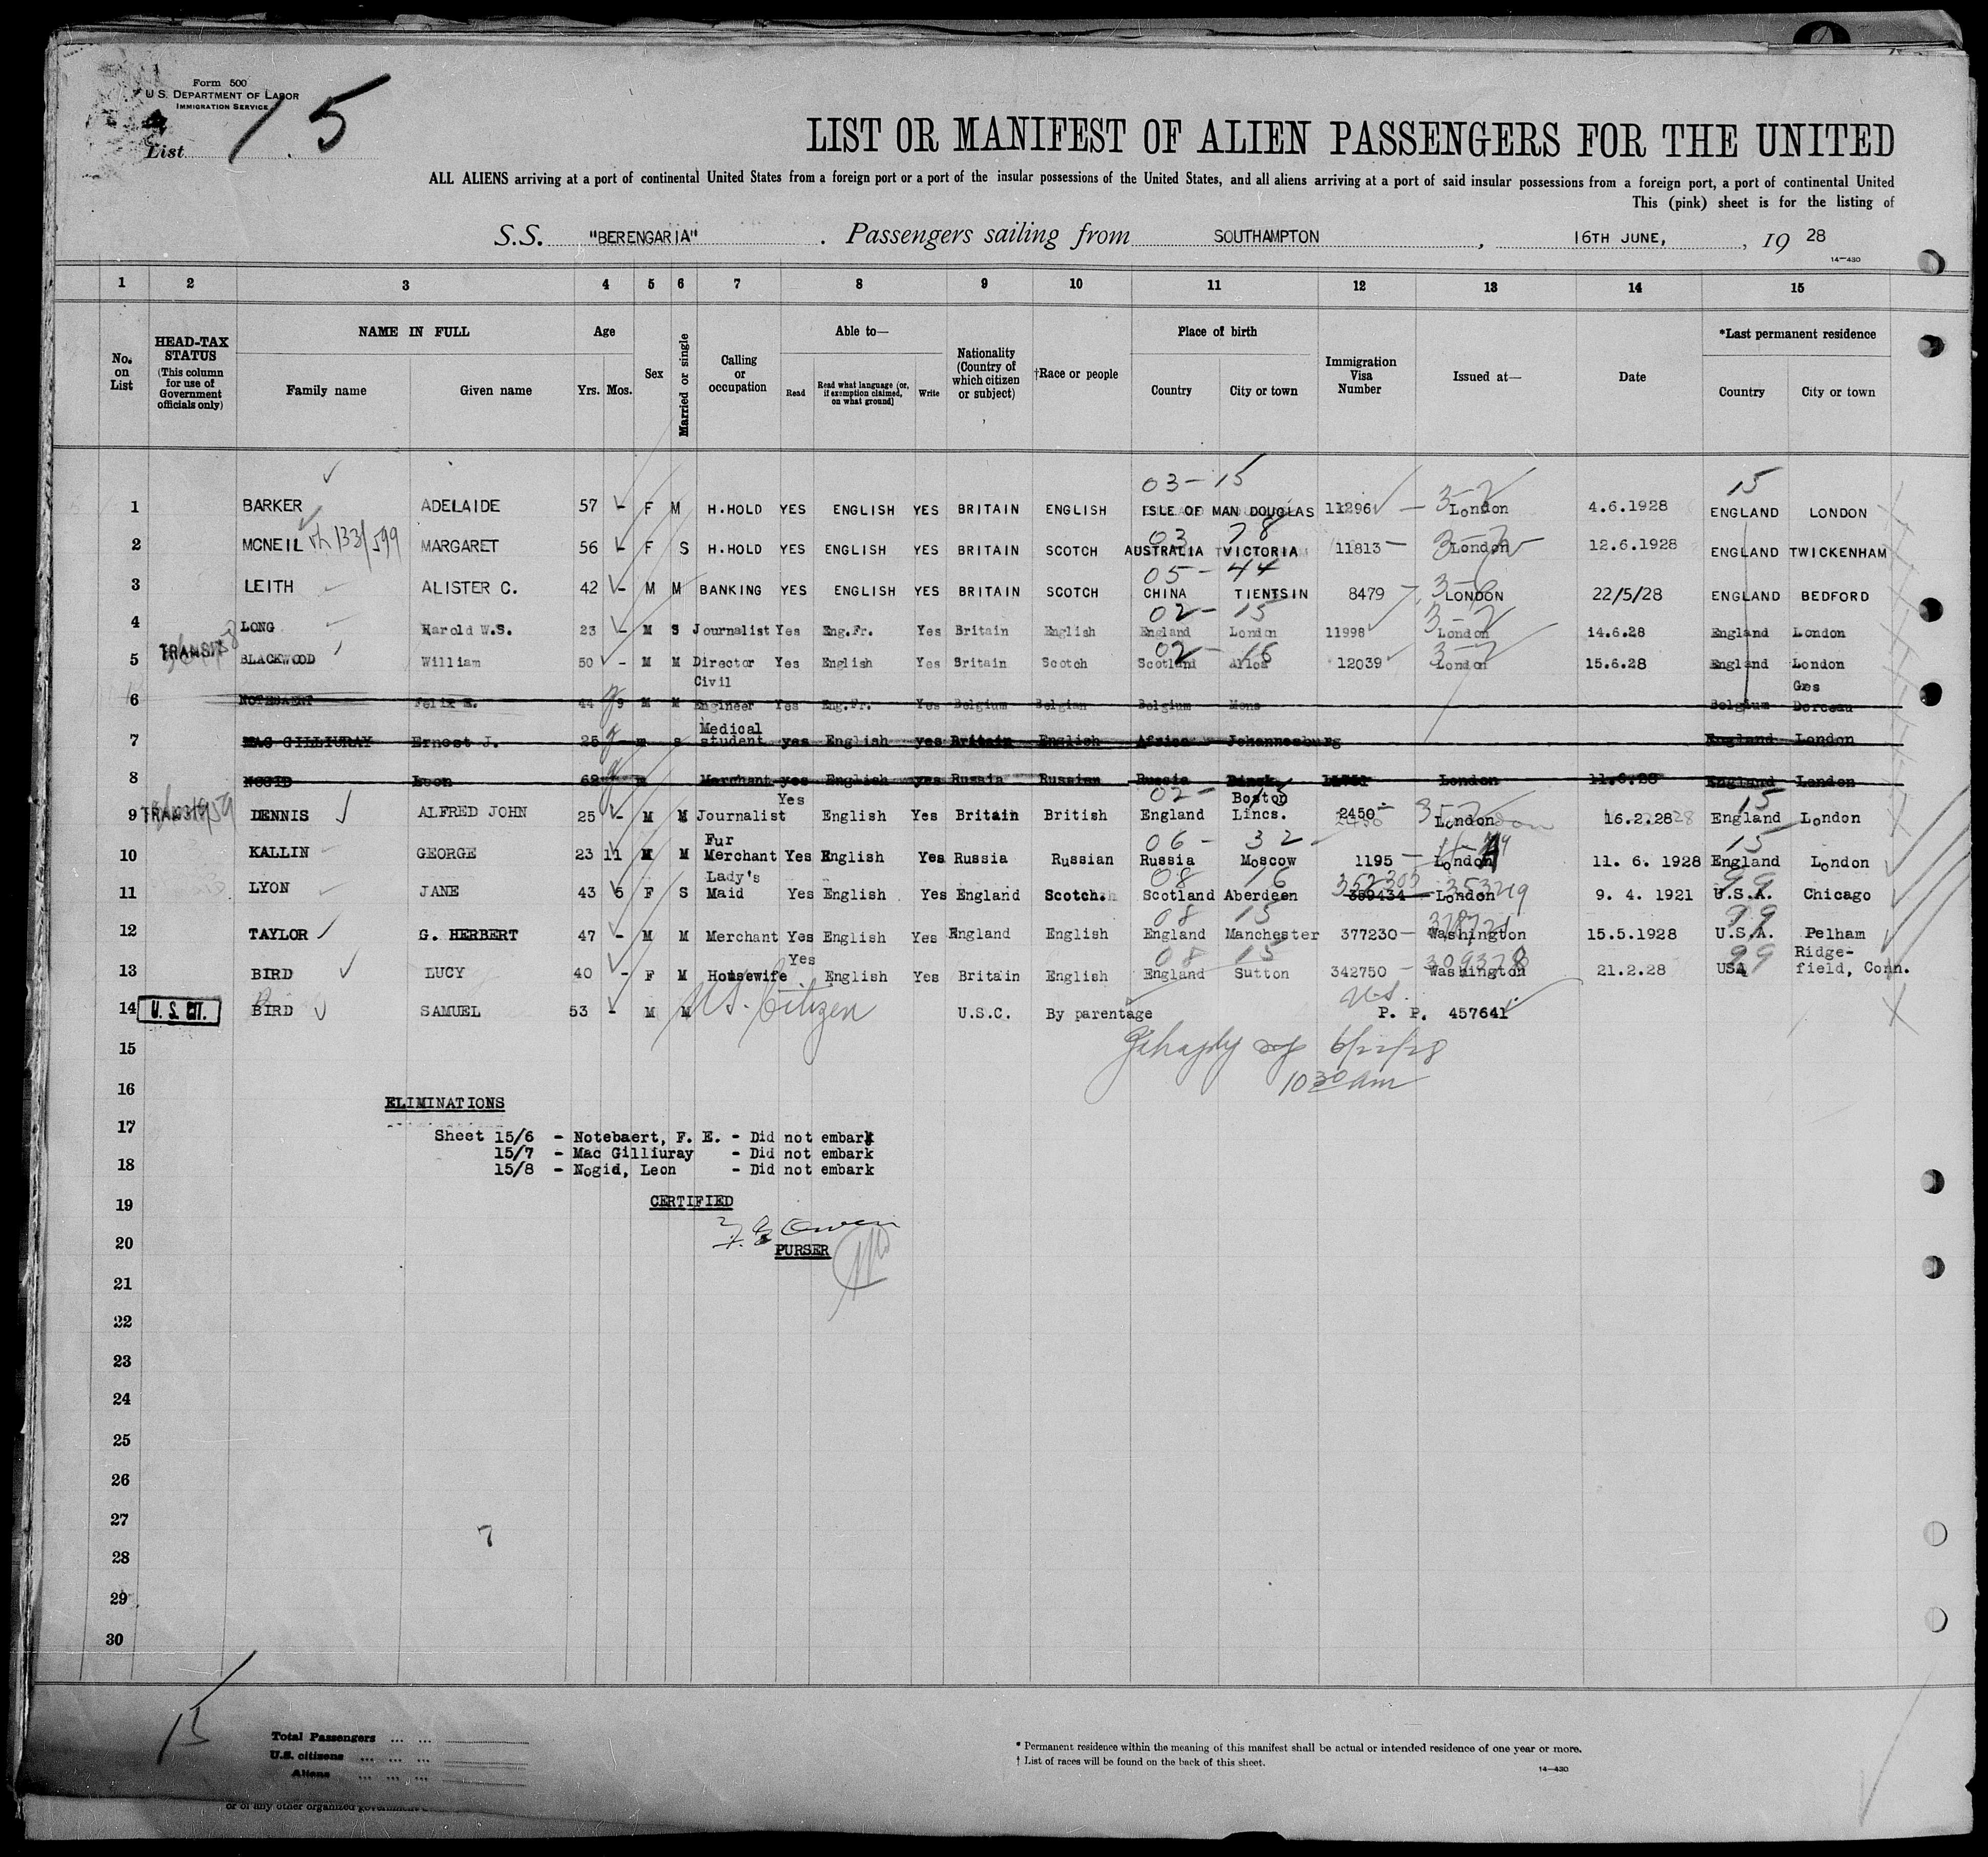 Form 500
U.S. DEPARTMENT OF LABOR
IMMIGRATION SERVICE
List 15
LIST OR MANIFEST OF ALIEN PASSENGERS FOR THE UNITED
ALL ALIENS arriving at a port of continental United States from a foreign port or a port of the insular possessions of the United States, and all aliens arriving at a port of said insular possessions from a foreign port, a port of continental United
This (pink) sheet is for the listing of
S.S. "BERENGARIA" . Passengers sailing from SOUTHAMPTON , 16TH JUNE, , 19 28
14—430
1 2 3 4 5 6 7 8 9 10 11 12 13 14 15
No. on List
HEAD-TAX STATUS (This column for use of Government officials only)
NAME IN FULL
Family name Given name
Age
Yrs. Mos.
Sex
Married or single
Calling or occupation
Able to—
Read Read what language (or, if exemption claimed, on what ground) Write
Nationality (Country of which citizen or subject)
†Race or people
Place of birth
Country City or town
Immigration Visa Number
Issued at—
Date
*Last permanent residence
Country City or town
03-15 15
1 BARKER ADELAIDE 57 - F M H.HOLD YES ENGLISH YES BRITAIN ENGLISH ISLE OF MAN DOUGLAS 11296 3-2 London 4.6.1928 ENGLAND LONDON
03 78
2 MCNEIL 133/599 MARGARET 56 - F S H.HOLD YES ENGLISH YES BRITAIN SCOTCH AUSTRALIA VICTORIA 11813 London 12.6.1928 ENGLAND TWICKENHAM
05-44
3 LEITH ALISTER C. 42 - M M BANKING YES ENGLISH YES BRITAIN SCOTCH CHINA TIENTSIN 8479 LONDON 22/5/28 ENGLAND BEDFORD
02-15
4 LONG Harold W.S. 23 - M S Journalist Yes Eng.Fr. Yes Britain English England London 11998 3-2 London 14.6.28 England London
02-16
5 TRANSIT BLACKWOOD William 50 - M M Director Yes English Yes Britain Scotch Scotland Alloa 12039 3-2 London 15.6.28 England London
6 NOTEBAERT Felix E. 44 9 M M Civil Engineer Yes Eng.Fr. Yes Belgium Belgian Belgium Mons Belgium Gos Dorceau
7 MAC GILLIURAY Ernest J. 25 - m s Medical student yes English yes Britain English Africa Johannesburg England London
8 NOGID Leon 62 m Merchant yes English yes Russia Russian Russia London 11.6.28 England London
02- 15
9 TRANSIT DENNIS ALFRED JOHN 25 - M M Journalist Yes English Yes Britain British England Boston Lincs. 2450 London 16.2.28 England London
06-32 15
10 KALLIN GEORGE 23 11 M M Fur Merchant Yes English Yes Russia Russian Russia Moscow 1195 London 11. 6. 1928 England London
08 16 352303 353219 99
11 LYON JANE 43 5 F S Lady's Maid Yes English Yes England Scotch. Scotland Aberdeen 359434 London 9. 4. 1921 U.S.A. Chicago
08 15 99
12 TAYLOR G. HERBERT 47 - M M Merchant Yes English Yes England English England Manchester 377230 Washington 15.5.1928 U.S.A. Pelham
08 15 309378 99
13 BIRD LUCY 40 - F M Housewife Yes English Yes Britain English England Sutton 342750 Washington 21.2.28 USA Ridgefield, Conn.
14 U. S. CIT. BIRD SAMUEL 53 - M M US. Citizen U.S.C. By parentage U.S. P. P. 457641
15 6/22/28
16 10 30 am
ELIMINATIONS
17 Sheet 15/6 - Notebaert, F. E. - Did not embark
15/7 - Mac Gilliuray - Did not embark
18 15/8 - Nogid, Leon - Did not embark
19 CERTIFIED
F. E. Owen
20 PURSER
21
22
23
24
25
26
27
7
28
29
30
15
Total Passengers ... ...
U.S. citizens ... ... ...
Aliens ... ... ...
* Permanent residence within the meaning of this manifest shall be actual or intended residence of one year or more.
† List of races will be found on the back of this sheet.
14—430
or of any other organized government